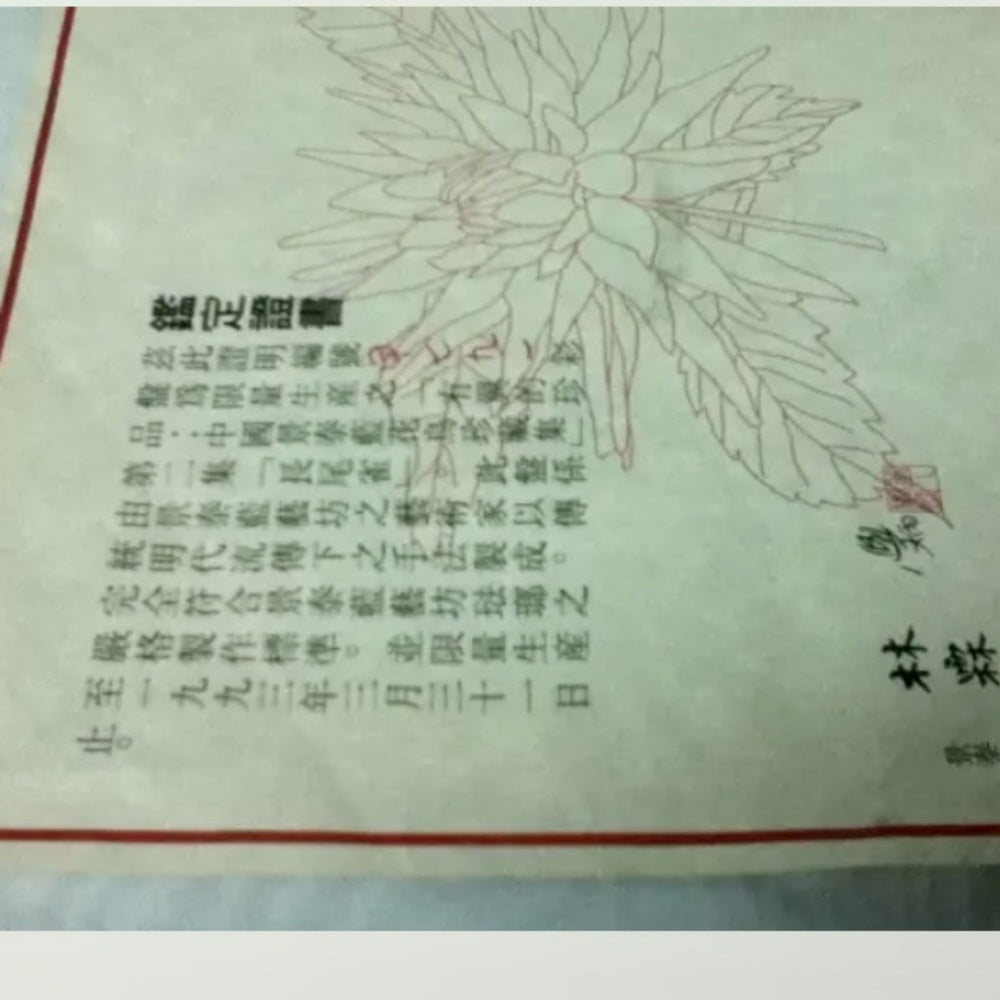 鑑定證書
茲此證明編號 七九一 彩
盤爲限量生産之「有翼的珍
品：中國景泰藍花鳥珍藏集」
第二集「長尾雀」。此盤係
由景泰藍藝坊之藝術家以傳
統明代流傳下之手法製成。
完全符合景泰藍藝坊琺瑯之
嚴格製作標準。並限量生産
至一九九三年三月三十一日
止。
林霖
景泰